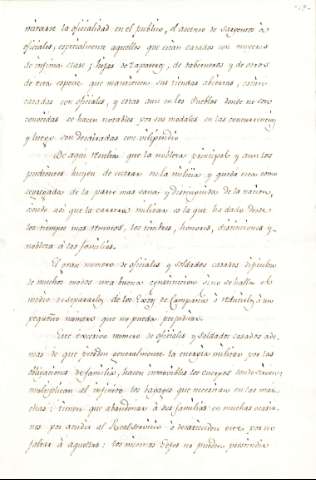 mirarse la oficialidad en el publico, el ascenso de Sargentos à
oficiales, especialmente aquellos que estàn casados con mugeres
de infima clase; hijas de zapateros, de taberneros y de otros
de esta especie que mantienen sus tiendas abiertas, estàn
casadas con oficiales, y otras aun en los Pueblos donde no son
conocidas se hacen notables por sus modales en las concurrencias
y luego son desairadas con vilipendio.
De aqui resulta que la nobleza principal y aun los
pudientes huyen de entrar en la milicia y queda esta como
segregada de la parte mas sana y distinguida de la nacion,
siendo asi que la carrera militar es la que ha dado desde
los tiempos mas remotos, los timbres, honores, distinciones y
nobleza à las familias.
El gran numero de oficiales y soldados casados dificulta
de muchos modos una buena constitucion sino se halla el
medio de separarlos de los Exercitos de Campaña ò reducirlos à un
pequeño numero que no pueda perjudicar.
Este excesivo numero de oficiales y soldados casados ade-
mas de que pierden generalmente la energia militar por las
de familia, hacen inmovibles los cuerpos
multiplican al infinito los bagajes que necesitan en las mar-
chas; tienen que abandonar à sus familias en muchas ocasio-
nes por acudir al Real servicio ò desatienden este por no
faltar à aquellas: los mismos Gefes no pueden prescindir